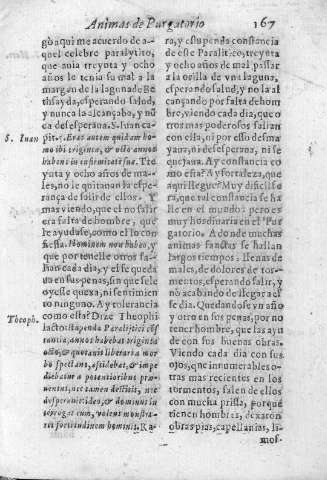 Animas de Purgatorio 167
go aqui me acuerdo de a-
quel celebre paralytico,
que auia treynta y ocho
años le tenia su mal a la
margen de la laguna de Be
thsayda, esperando salud,
y nunca la alcançabo, y nũ
ca desesperana. S. Iuan ca-
pit. Erat autem quidam ho-
mo ibi triginta, & octo annos
habens in infirmitate sua. Tre
ynta y ocho años de ma-
les, no le quitanan la espe-
rança de salir de ellos. Y
mas viendo, que el no salir
era falta de hombre, que
le ayudase, como el lo con
fiesa. Hominem non habeo, y
que por tenelle otros sa-
lian cada dia, y el se queda
ua en sus penas, sin que se le
oyesse quexa, ni sentimien
to ninguno. Ay tolerancia
como esta? Dize Theophi
lacto: stupenda Paralytici cõs
tantia, annos habebat triginta
octo, & quotannis liberari à mor
bo sperans, assidebat, & impe
diebatur à potentioribus præ-
uentus, nec tamen destitit, nec
desperauit: ideo, & dominus in
terrogat eum, volens monstra-
re fortitudinem hominis. Ra-
S. Iuan
Theoph.
ra, y estupenda constancia
de este Paralitico, treynta
y ocho años de mal passar
a la orilla de vna laguna,
esperando salud, y no la al
cançando por falta de hom
bre, viendo cada dia, que o
tros mas poderosos salian
con ella, ni por esso desma
yana, ni desesperana, ni se
quejana. Ay constancia co
mo esta? Ay fortaleza, que
aqui llegue? Muy dificil se
ra, que tal constancia se ha
lle en el mundo: pero es
muy hordinaria en el Pur
gatorio. Adonde muchas
animas sanctas se hallan
largos tiempos, llenas de
males, de dolores de tor-
mentos, esperando salir, y
no acabando de llegar a es
se dia. Quedandose vn año
y otro en sus penas, por no
tener hombre, que las ayu
de con sus buenas obras.
Viendo cada dia con sus
ojos, que innumerables o-
tras mas recientes en los
tormentos, salen de ellos
con mucha prissa, porque
tienen hombres, dexaron
obras pias, capellanias, li-
mos-